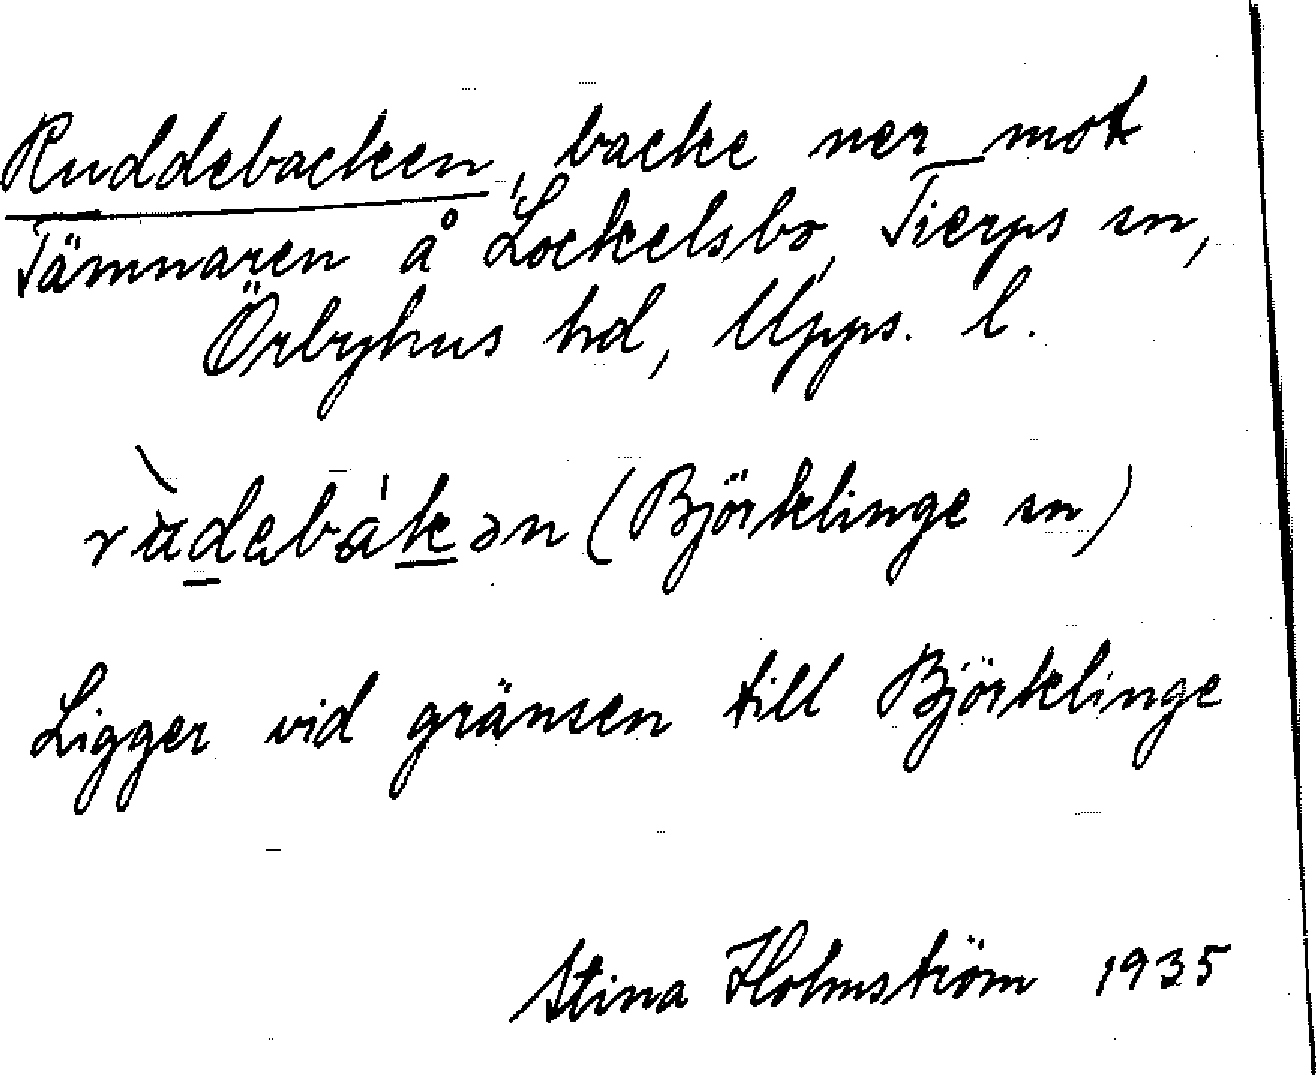 Ruddebacken, backe ner mot
Tämnaren å Lockelsbo, Tierps sn,
Örbyhus hd, Upps. l.
rùdebákən (Björklinge sn)
Ligger vid gränsen till Björklinge
Stina Holmström 1935